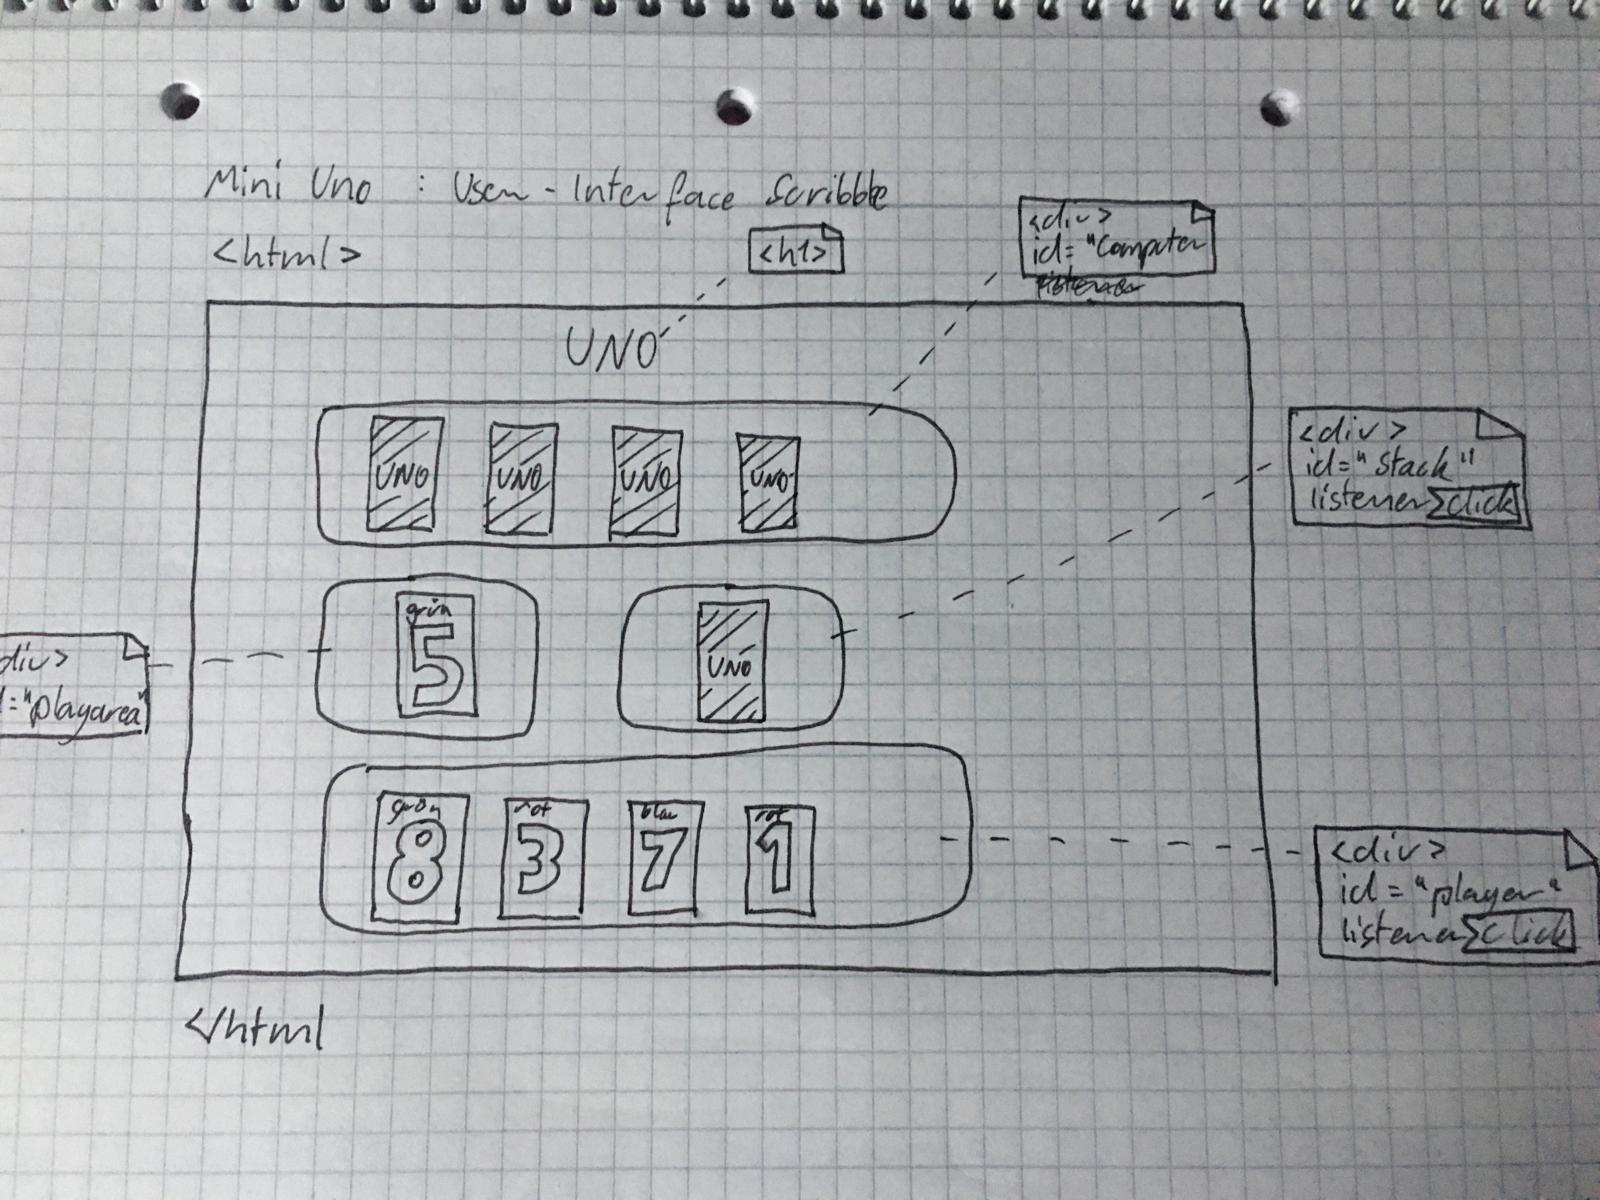 Mini Uno : User-Interface Scribble
<html>
<h1>
<div>
id="Computer
UNO
UNO UNO UNO UNO
<div>
id="Stack"
listener click
grün
5
UNO
div>
d="playarea"
grün rot blau rot
8 3 7 1
<div>
id="player"
listener click
</html